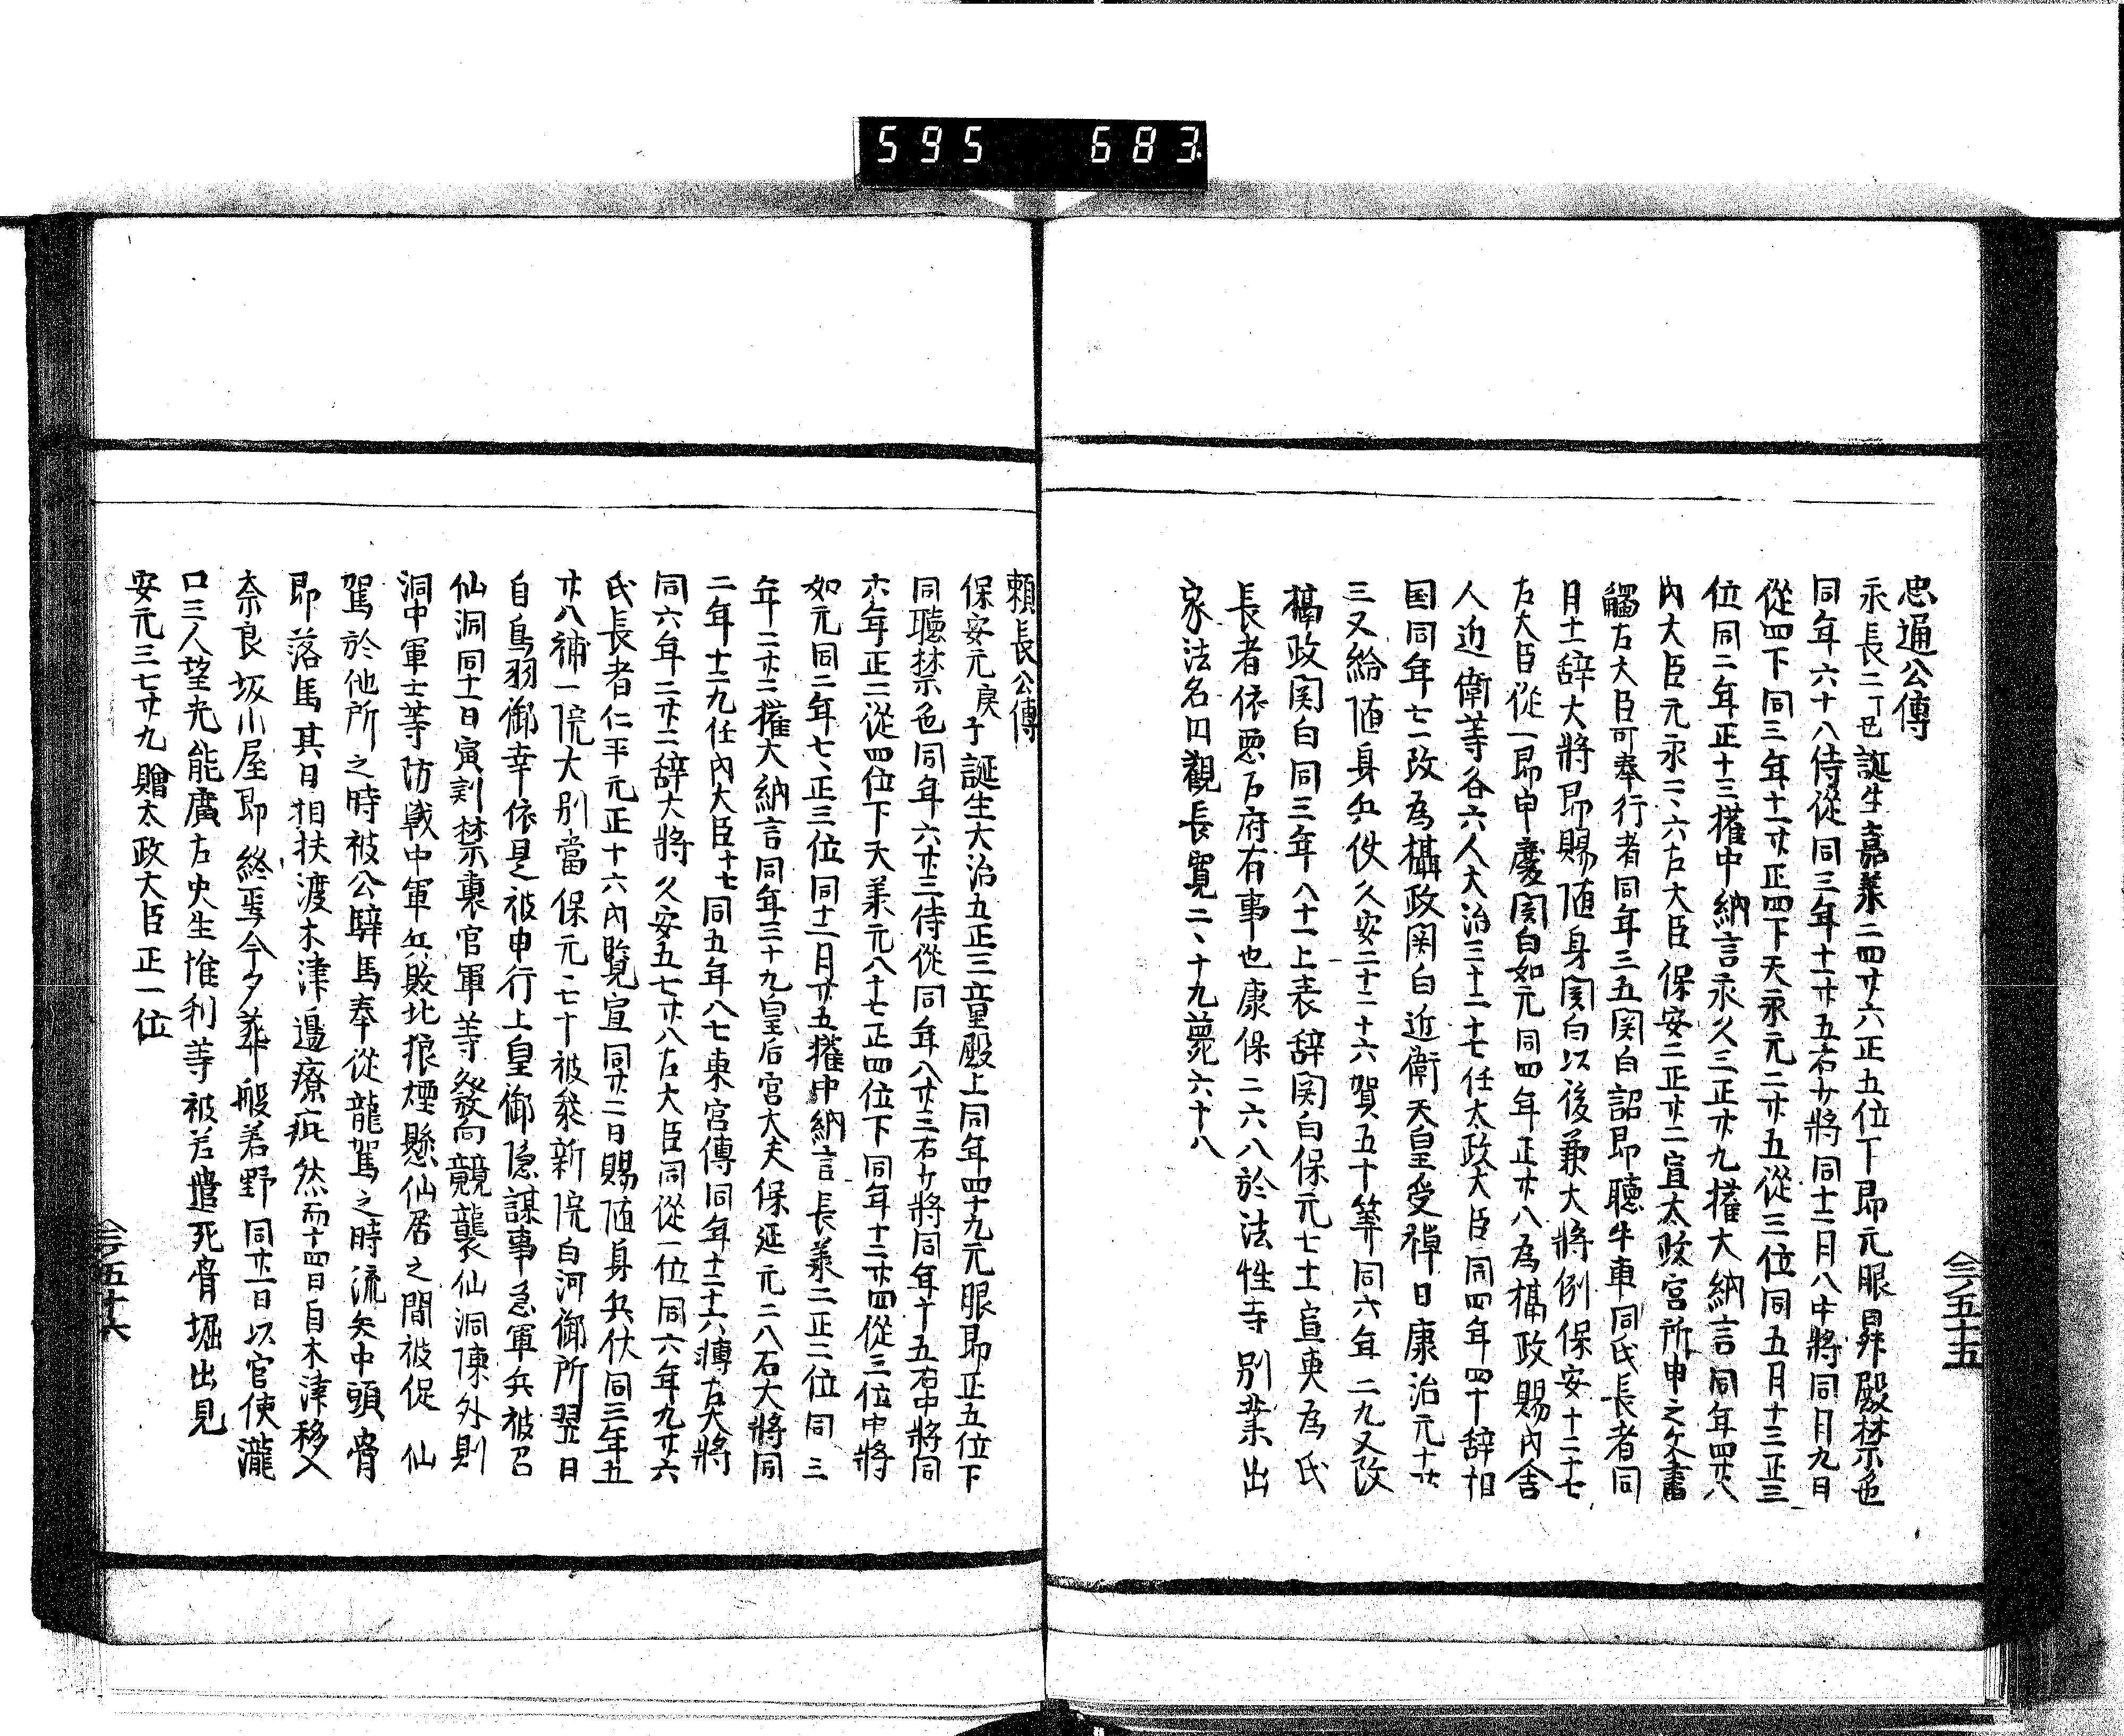 595 683
忠通公傳
永長二丁巳誕生嘉業二四廿六正五位下即元服昇殿禁色
同年六十八侍從同三年十二廿五右少將同十二月八中將同月九日
從四下同三年十一廿正四下天永元二廿五從三位同五月十三正三
位同二年正十三權中納言永久三正廿九權大納言同年四廿八
內大臣元永二、六右大臣保安二正廿二宣太政官所申之文書
觸右大臣可奉行者同年三五関白詔即聽牛車同氏長者同
月十一辞大將即賜随身関白以後兼大將例保安十二十七
左大臣從一即申慶関白如元同四年正廿八為攝政賜內舍
人近衛等各六人大治三十二十七任太政大臣同四年四十辞相
国同年七一改為攝政関白近衛天皇受禅日康治元十廿
三又給随身兵仗久安二十二十六賀五十筭同六年二九又改
攝政関白同三年八十一上表辞関白保元七十一宣更為氏
長者依悪左府有事也康保二六八於法性寺別業出
家法名円觀長寛二、十九薨六十八
今ノ五十五
頼長公傳
保安元庚子誕生大治五正三童殿上同年四十九元服即正五位下
同聽禁色同年六廿三侍從同年八廿三右少將同年十五右中將同
六年正二從四位下天羕元八十七正四位下同年十二廿四從三位中將
如元同二年七、正三位同十二月廿五權中納言長羕二正二位同三
年二廿二權大納言同年三十九皇后宮大夫保延元二八右大將同
二年十二九任內大臣十七同五年八七東宮傳同年十二十六轉左大將
同六年二廿二辞大將久安五七廿八左大臣同從一位同六年九廿六
氏長者仁平元正十六內覧宣同廿二日賜随身兵仗同三年五
廿八補一院大別當保元二七十被参新院白河御所翌日
自鳥羽御幸依是被申行上皇御隠謀事急軍兵被召
仙洞同十一日寅刻禁裏官軍等發向競襲仙洞陳外則
洞中軍士等防戦中軍兵敗北狼煙懸仙居之間被促仙
駕於他所之時被公騂馬奉從龍駕之時流矢中頭骨
即落馬其日相扶渡木津邉療疵然而十四日自木津移入
奈良坂小屋即終焉今夕葬般若野同廿一日以官使瀧
口三人望光能廣左史生惟利等被差遣死骨堀出見
安元三七廿九贈太政大臣正一位
今ノ五十六